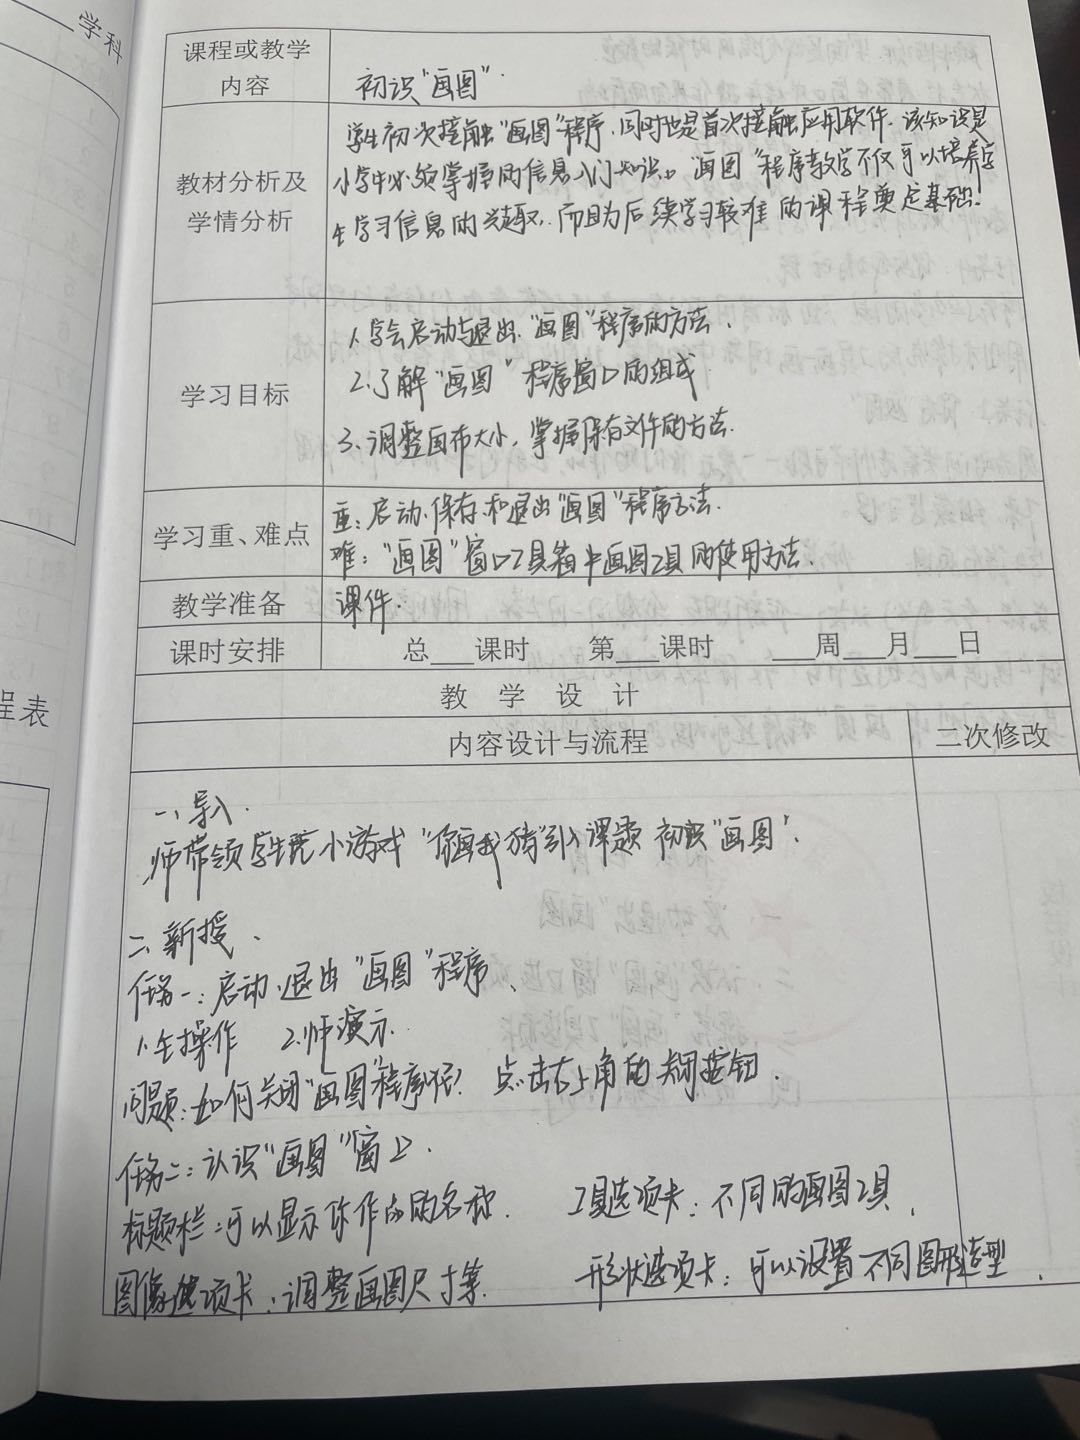 学科
程表
课程或教学
内容
初识“画图”.
教材分析及
学情分析
学生初次接触“画图”程序,同时也是首次接触应用软件.该知识是
小学生必须掌握的信息入门知识。“画图”程序教学不仅可以培养学
生学习信息的兴趣,而且为后续学习较难的课程奠定基础.
学习目标
1.学会启动与退出“画图”程序的方法.
2.了解“画图”程序窗口的组成
3.调整画布大小,掌握保存文件的方法.
学习重、难点
重:启动、保存和退出“画图”程序方法.
难:“画图”窗口工具箱中画图工具的使用方法.
教学准备
课件.
课时安排
总___课时 第___课时 ___周___月___日
教 学 设 计
内容设计与流程
二次修改
一、导入.
师带领学生玩小游戏“你画我猜”引入课题 初识“画图”.
二、新授、
任务一:启动、退出“画图”程序、
1.生操作 2.师演示.
问题:如何关闭“画图”程序呢? 点击右上角的关闭按钮.
任务二:认识“画图”窗口.
标题栏:可以显示你作品的名称. 工具选项卡:不同的画图工具.
图像选项卡:调整画图尺寸等. 形状选项卡:可以设置不同图形造型.